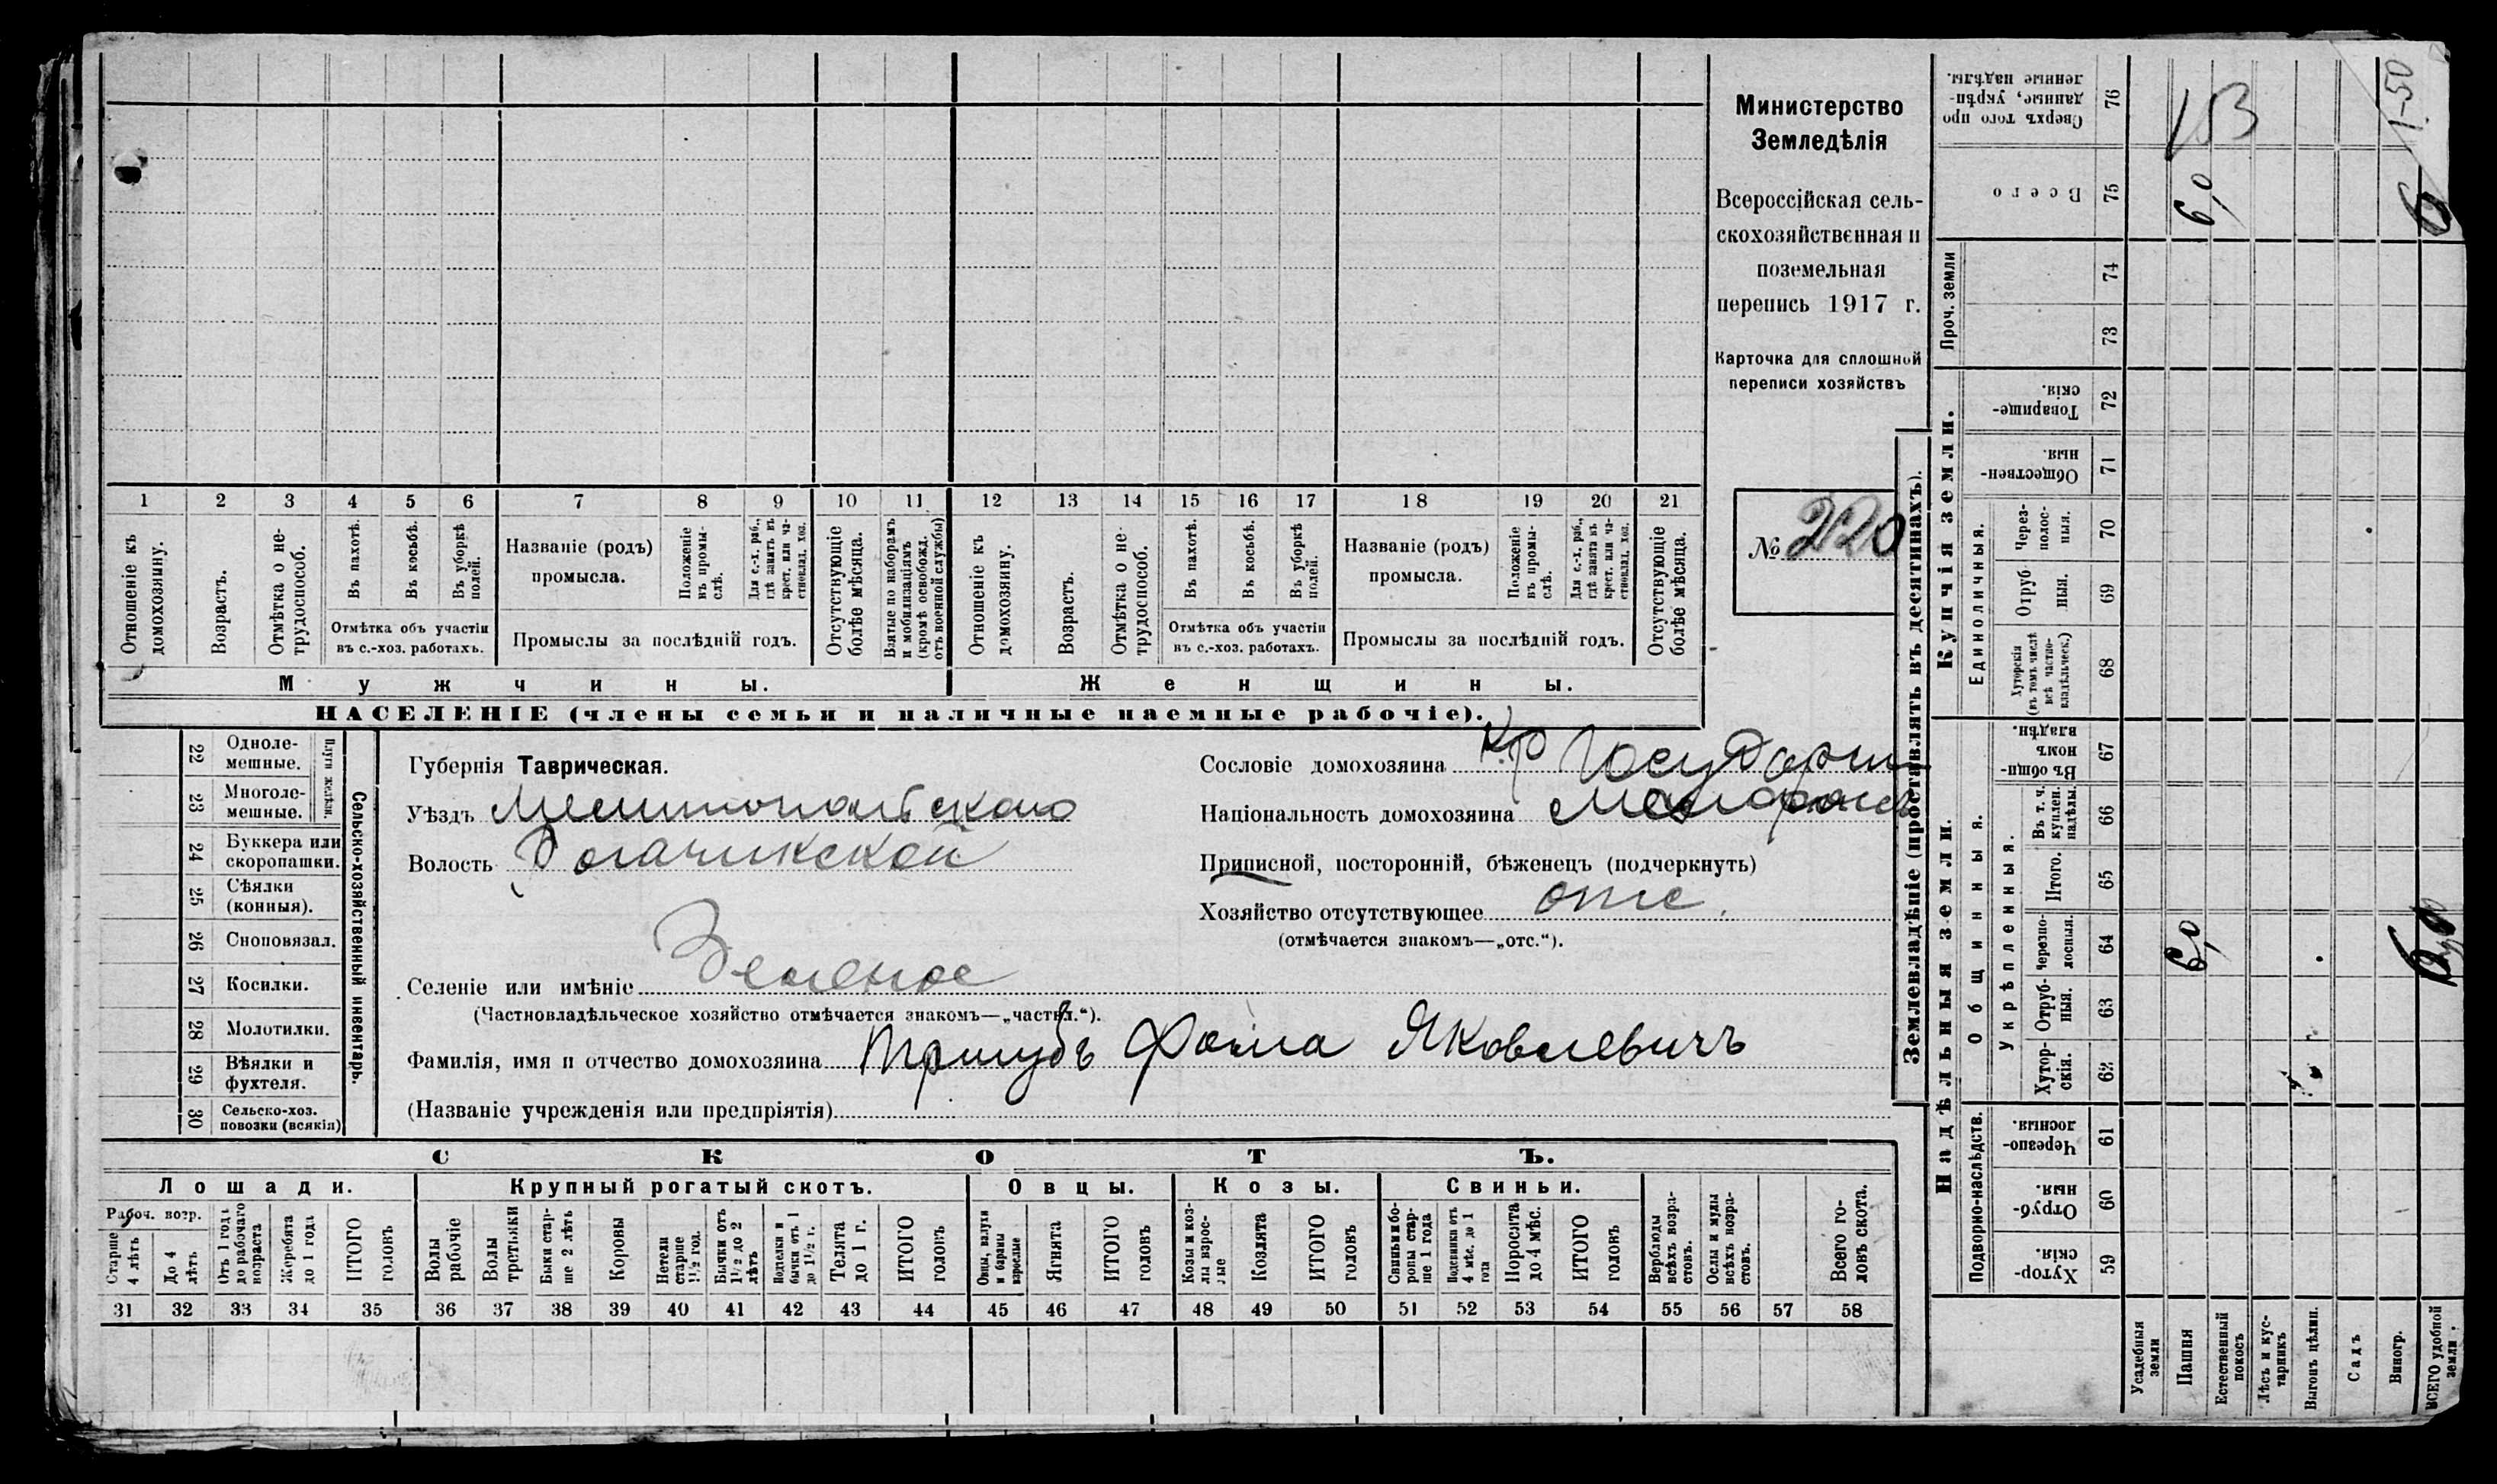 Министерство
Земледѣлія
Всероссійская сель-
скохозяйственная и
поземельная
перепись 1917 г.
Карточка для сплошной
переписи хозяйствъ
№ 220
1 2 3 4 5 6 7 8 9 10 11 12 13 14 15 16 17 18 19 20 21
Отношеніе къ домохозяину.
Возрастъ.
Отмѣтка о не-трудоспособ.
Въ пахотѣ.
Въ косьбѣ.
Въ уборкѣ полей.
Отмѣтка объ участіи
въ с.-хоз. работахъ.
Названіе (родъ)
промысла.
Положеніе въ промы-слѣ.
Для с.-х. раб., гдѣ занятъ въ крест. или ча-стновлад. хоз.
Промыслы за послѣдній годъ.
Отсутствующіе болѣе мѣсяца.
Взятые по наборамъ и мобилизаціямъ (кромѣ освобожд. отъ военной службы)
Отношеніе къ домохозяину.
Возрастъ.
Отмѣтка о не-трудоспособ.
Въ пахотѣ.
Въ косьбѣ.
Въ уборкѣ полей.
Отмѣтка объ участіи
въ с.-хоз. работахъ.
Названіе (родъ)
промысла.
Положеніе въ промы-слѣ.
Для с.-х. раб., гдѣ занята въ крест. или ча-стновлад. хоз.
Промыслы за послѣдній годъ.
Отсутствующіе болѣе мѣсяца.
Мужчины. Женщины.
НАСЕЛЕНІЕ (члены семьи и наличные наемные рабочіе).
Сельско-хозяйственный инвентарь.
Плуги желѣзн.
22 Одноле-мешные.
23 Многоле-мешные.
24 Буккера или скоропашки.
25 Сѣялки (конныя).
26 Сноповязал.
27 Косилки.
28 Молотилки.
29 Вѣялки и фухтеля.
30 Сельско-хоз. повозки (всякія)
Губернія Таврическая.
Уѣздъ Мелитопольскаго
Волость Рогачикской
Селеніе или имѣніе Зеленое
(Частновладѣльческое хозяйство отмѣчается знакомъ—„частвл.“).
Фамилія, имя и отчество домохозяина Тришубъ Фома Яковлевичъ
(Названіе учрежденія или предпріятія)
Сословіе домохозяина кр Государ
Національность домохозяина малоросс
Приписной, посторонній, бѣженецъ (подчеркнуть)
Хозяйство отсутствующее отс.
(отмѣчается знакомъ—„отс.“).
СКОТЪ.
Лошади. Крупный рогатый скотъ. Овцы. Козы. Свиньи.
Рабоч. возр.
Старше 4 лѣтъ
До 4 лѣтъ
Отъ 1 года до рабочаго возраста
Жеребята до 1 года
ИТОГО головъ
Волы рабочіе
Волы третьяки
Быки стар-ше 2 лѣтъ
Коровы
Нетели старше 1½ год.
Бычки отъ 1½ до 2 лѣтъ
Подтелки и бычки отъ 1 до 1½ г.
Телята до 1 г.
ИТОГО головъ
Овцы, валухи и бараны взрослые
Ягнята
ИТОГО головъ
Козы и коз-лы взрос-лые
Козлята
ИТОГО головъ
Свиньи и бо-ровы стар-ше 1 года
Подсвинки отъ 4 мѣс. до 1 года
Поросята до 4 мѣс.
ИТОГО головъ
Верблюды всѣхъ возра-стовъ.
Ослы и мулы всѣхъ возра-стовъ.
Всего го-ловъ скота.
31 32 33 34 35 36 37 38 39 40 41 42 43 44 45 46 47 48 49 50 51 52 53 54 55 56 57 58
Землевладѣніе (проставлять въ десятинахъ).
Надѣльныя земли.
Купчія земли.
Проч. земли
Подворно-наслѣдств.
Общинныя.
Укрѣпленныя.
Единоличныя.
Хутор-скія. 59
Отруб-ныя. 60
Черезпо-лосныя. 61
Хутор-скія. 62
Отруб-ныя. 63
Черезпо-лосныя. 64
Итого. 65
Въ т. ч. куплен. надѣлы. 66
Въ общи-номъ владѣн. 67
Хуторскія (въ томъ числѣ всѣ частно-владѣльческ.) 68
Отруб-ныя. 69
Через-полос-ныя. 70
Обществен-ныя. 71
Товарище-скія. 72
73
74
Всего 75
Сверхъ того про-данные, укрѣп-ленные надѣлы. 76
Усадебныя земли
Пашня 6,0 6,0
Естественный покосъ
Лѣсъ и кус-тарникъ
Выгонъ цѣлин.
Садъ
Виногр.
ВСЕГО удобной земли.
6
1-50